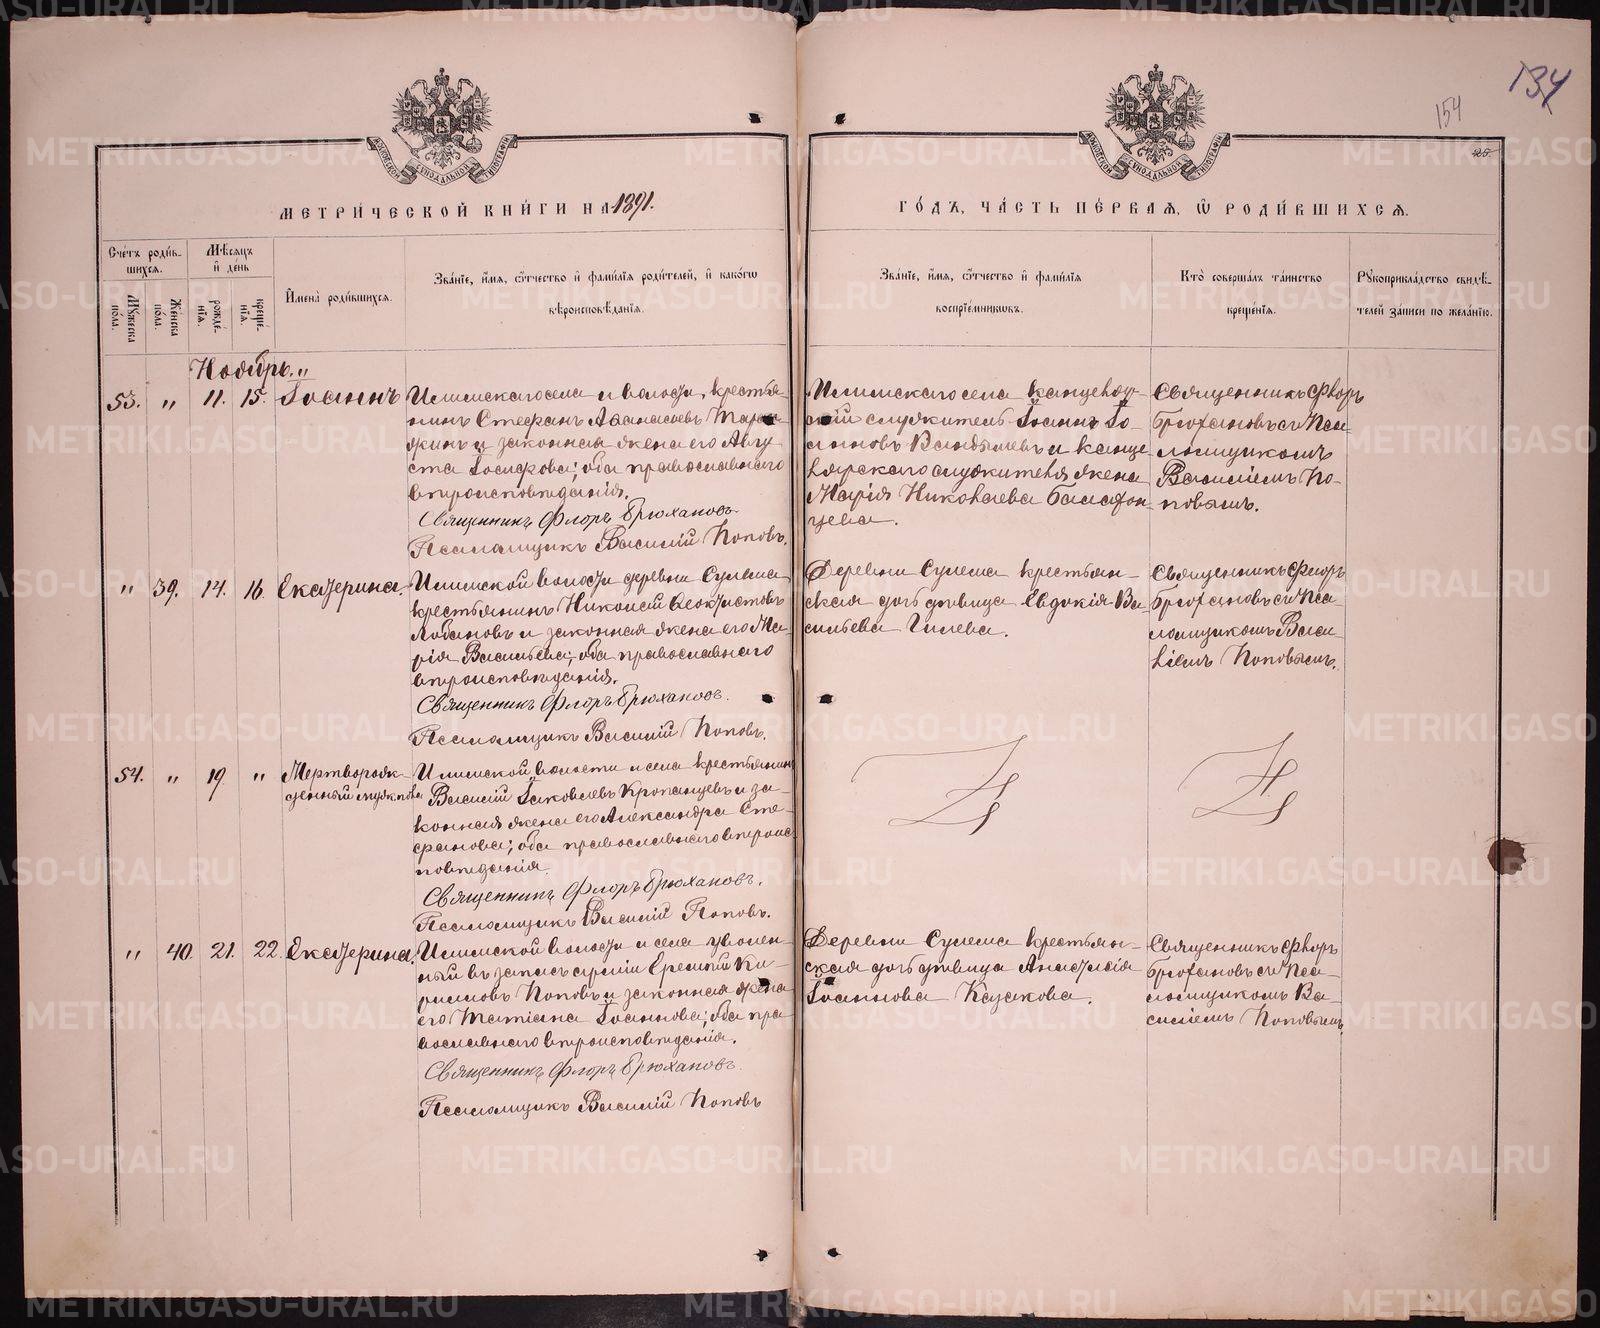 134
154
25.
МОСКОВСКОЙ СѴНОДАЛЬНОЙ ТИПОГРАФІИ
МОСКОВСКОЙ СѴНОДАЛЬНОЙ ТИПОГРАФІИ
МЕТРИ́ЧЕСКОЙ КНИ́ГИ НА 1891.
ГО́ДЪ, ЧА́СТЬ ПЕ́РВАЯ, Ѽ РОДИ́ВШИХСЯ.
Сче́тъ роди́в-
шихся.
Мѣ́сяцъ
и҆ де́нь
Му́жеска
по́ла.
Же́нска
по́ла.
рожде́-
нїя.
креще́-
нїя.
И҆мена̀ роди́вшихся.
Зва́нїе, и҆́мя, ѻ҆́тчество и҆ фами́лїя роди́телей, и҆ како́гѡ
вѣроисповѣ́данїя.
Зва́нїе, и҆́мя, ѻ҆́тчество и҆ фами́лїя
воспрїе́мникѡвъ.
Кто̀ соверша́лъ та́инство
креще́нїя.
Рꙋкоприкла́дство свидѣ́-
телей за́писи по жела́нїю.
Ноябрь. "
53. " 11. 15. Іоаннъ
Илимскаго села и волости, крестья-
нинъ Стефанъ Аѳанасьевъ
и законная жена его Авгу-
ста Іосифова; оба православнаго
вѣроисповѣданія.
Священникъ Флоръ Брюхановъ.
Псаломщикъ Василій Поповъ.
Илимскаго села канцеляр-
скій служитель Іоаннъ Іо-
анновъ и канце-
лярскаго служителя жена
Марія Николаева
цева.
Священникъ Флоръ
Брюхановъ съ Пса-
ломщикомъ
Василіемъ По-
повымъ.
" 39. 14. 16. Екатерина.
Илимской волости деревни Сулема
крестьянинъ Николай Ѳеоктистовъ
Лобановъ и законная жена его Ма-
рія Васильева; оба православнаго
вѣроисповѣданія.
Священникъ Флоръ Брюхановъ.
Псаломщикъ Василій Поповъ.
Деревни Сулема крестьян-
ская дочь дѣвица Евдокія Ва-
сильева Гилева.
Священникъ Флоръ
Брюхановъ съ Пса-
ломщикомъ Васи-
ліемъ Поповымъ.
54. " 19 " Мертворож-
денный муж. пола
Илимской волости и села крестьянинъ
Василій Іаковлевъ Кропанцевъ и за-
конная жена его Александра Сте-
фанова; оба православнаго вѣроис-
повѣданія.
Священникъ Флоръ Брюхановъ.
Псаломщикъ Василій Поповъ.
" 40. 21. 22. Екатерина.
Илимской волости и села уволен-
ный въ запасъ арміи Еремѣй Ки-
риловъ Поповъ и законная жена
его Татіана Іоаннова; оба пра-
вославнаго вѣроисповѣданія.
Священникъ Флоръ Брюхановъ.
Псаломщикъ Василій Поповъ
Деревни Сулема крестьян-
ская дочь дѣвица Анастасія
Іоаннова Казакова.
Священникъ Флоръ
Брюхановъ съ Пса-
ломщикомъ Ва-
силіемъ Поповымъ.
METRIKI.GASO-URAL.RU